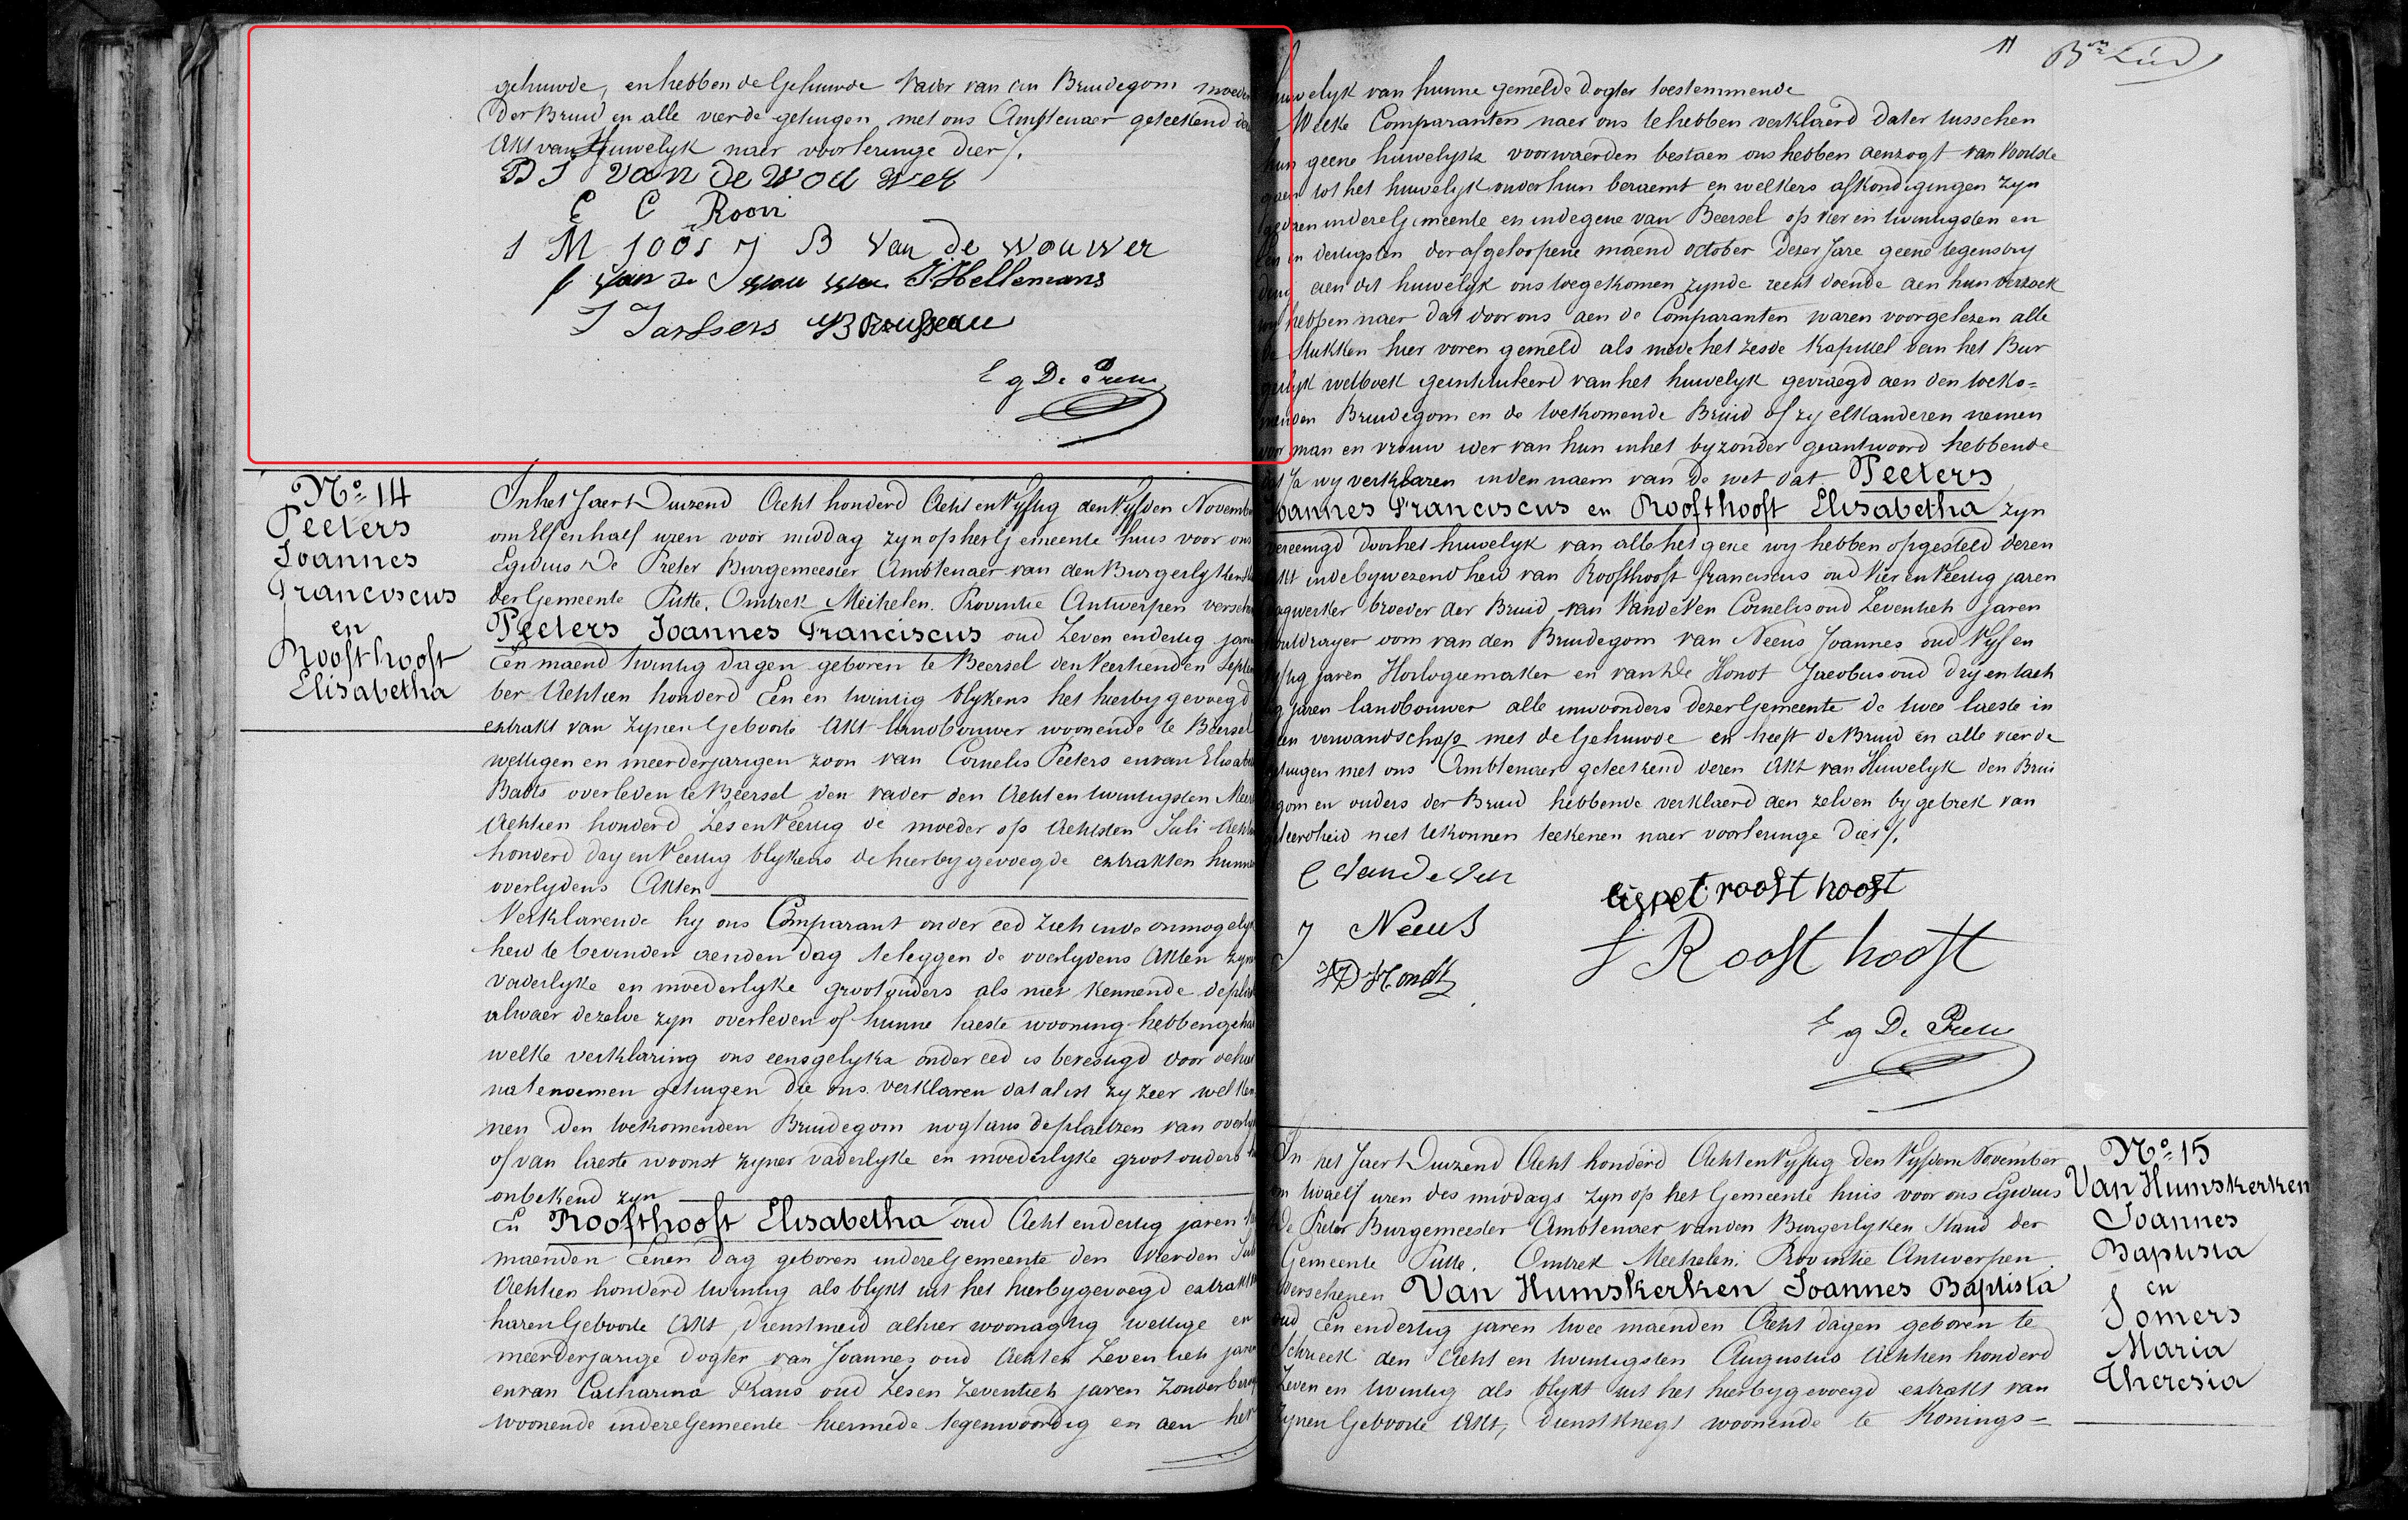 gehuwde, en hebben de Gehuwde Vader van den Bruidegom moeder
der Bruid en alle vierde getuigen met ons Amptenaer geteekend
Akt van Huwelyk naer voorlezinge dier /.
E C Roovi
I M Joos J B Van de Wouwer
J. Hellemans
J Janssens
E g De Preter
No 14
Peeters
Joannes
Franciscus
en
Roofthooft
Elisabetha
In het Jaer Duizend Acht honderd Acht en Vyftig den Vyfden Novemb
om Elf en half uren voor middag zyn op het Gemeente huis voor ons
Egidius De Preter Burgemeester Ambtenaer van den Burgerlyken
der Gemeente Putte, Omtrek Mechelen. Provintie Antwerpen versch
Peeters Joannes Franciscus oud Zeven en dertig jaren
Een maend twintig dagen geboren te Beersel den Veertienden Septem
ber Achtien honderd Een en twintig blykens het hierbygevoegd
extrakt van zynen Geboorte Akt landbouwer woonende te Beersel
wettigen en meerderjarigen zoon van Cornelis Peeters en van Elisabe
Baets overleden te Beersel den vader den Acht en twintigsten Meert
Achtien honderd Zes en Veertig de moeder op Achtsten Juli Acht
honderd dry en Veertig blykens de hierbygevoegde extrakten hunner
overlydens Akten
Verklarende hy ons Comparant onder eed zich in de onmogelyk
heid te bevinden aen den dag te leggen de overlydens Akten zyn
vaderlyke en moederlyke grootouders als niet kennende de pla
alwaer dezelve zyn overleden of hunne laeste wooning hebben geha
welke verklaring ons eensgelyks onder eed is bevestigd door de hier
natenoemen getuigen die ons verklaren dat alist zy zeer wel ken
nen den toekomenden Bruidegom nogtans de plaetzen van overly
of van laeste woonst zyner vaderlyke en moederlyke grootouders
onbekend zyn
En Roofthooft Elisabetha oud Acht en dertig jaren
maenden Eenen dag geboren in dere Gemeente den Vierden Juli
Achtien honderd twintig als blykt uit het hierbygevoegd extrakt
haren Geboorte Akt, dienstmeid alhier woonagtig wettige en
meerderjarige dogter van Joannes oud Acht en Zeventich jaren
en van Catharina Frans oud Zes en Zeventich jaren Zonder beroep
woonende in dere Gemeente hiermede tegenwoordig en aen het
11
huwelyk van hunne gemelde dogter toestemmende
Welke Comparanten naer ons te hebben verklaerd dater tusschen
hun geene huwelyks voorwaerden bestaen ons hebben aenzogt van Voorts te
gaen tot het huwelyk onder hun beraemt en welkers afkondigingen zyn
gedaen in dere Gemeente en in degene van Beersel op vier en twintigsten en
een en dertigsten der afgeloopene maend october dezer Jare geene tegensty
dend aen dit huwelyk ons toegekomen zynde recht doende aen hun verzoek
wy hebben naer dat door ons aen de Comparanten waren voorgelezen alle
de Stukken hier voren gemeld als mede het zesde Kapittel van het Bur
gerlyk wetboek geintituleerd van het huwelyk gevraegd aen den toeko=
menden Bruidegom en de toekomende Bruid of zy elkanderen nemen
voor man en vrouw ider van hun in het byzonder geantwoord hebbende
dat Ja wy verklaren in den naem van de wet dat Peeters
Joannes Franciscus en Roofthooft Elisabetha zyn
vereenigd door het huwelyk van alle het gene wy hebben opgesteld deren
akt in de bywezendheid van Roofthooft franciscus oud Vier en Veertig jaren
dagwerker broeder der Bruid van Vandeven Cornelis oud Zeventich jaren
oom van den Bruidegom van Neeus Joannes oud Vyf en
Vyftig jaren Horlogiemaker en van De Hondt Jacobus oud Dry en tach
tig jaren landbouwer alle inwoonders dezer Gemeente de twee laeste in
geen verwandschap met de Gehuwde en heeft de Bruid en alle vierde
getuigen met ons Ambtenaer geteekend deren Akt van Huwelyk den Brui
degom en ouders der Bruid hebbende verklaerd den zelven by gebrek van
geleerdheid niet te konnen teekenen naer voorlezinge dier /.
C Vandeven
lispet roofthooft
J Neeus
f Roofthooft
JD Hondt
E g De Preter
No 15
Van Humskerken
Joannes
Baptista
en
Somers
Maria
Theresia
In het Jaer Duizend Acht honderd Acht en Vyftig den Vyfden November
om twaelf uren des middags zyn op het Gemeente huis voor ons Egidius
De Preter Burgemeester Ambtenaer van den Burgerlyken Stand der
Gemeente Putte, Omtrek Mechelen. Provintie Antwerpen
Verschenen Van Humskerken Joannes Baptista
oud Een en dertig jaren twee maenden Acht dagen geboren te
Schrieck den Acht en twintigsten Augustus Achtien honderd
Zeven en twintig als blykt uit het hierbygevoegd extrakt van
zynen Geboorte Akt, dienstknegt woonende te Konings=